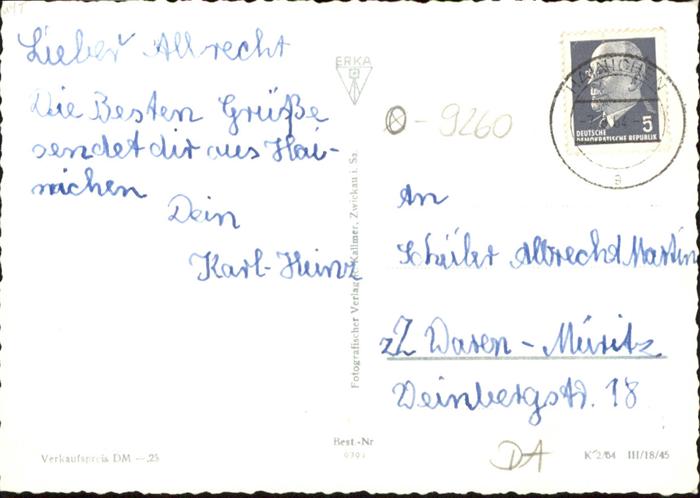 Lieber Albrecht
Die Besten Grüße
sendet dir aus Hai-
nichen
Dein
Karl-Heinz
Verkaufspreis DM —,25
ERKA
Fotografischer Verlag R. Kallmer, Zwickau i. Sa.
Best.-Nr
⊗ - 9260
HAINICHEN
a
DEUTSCHE
DEMOKRATISCHE REPUBLIK
5
An
Schüler Albrecht Martin
zZ Waren - Müritz
Weinbergstr. 18
DA
K 2/64 III/18/45